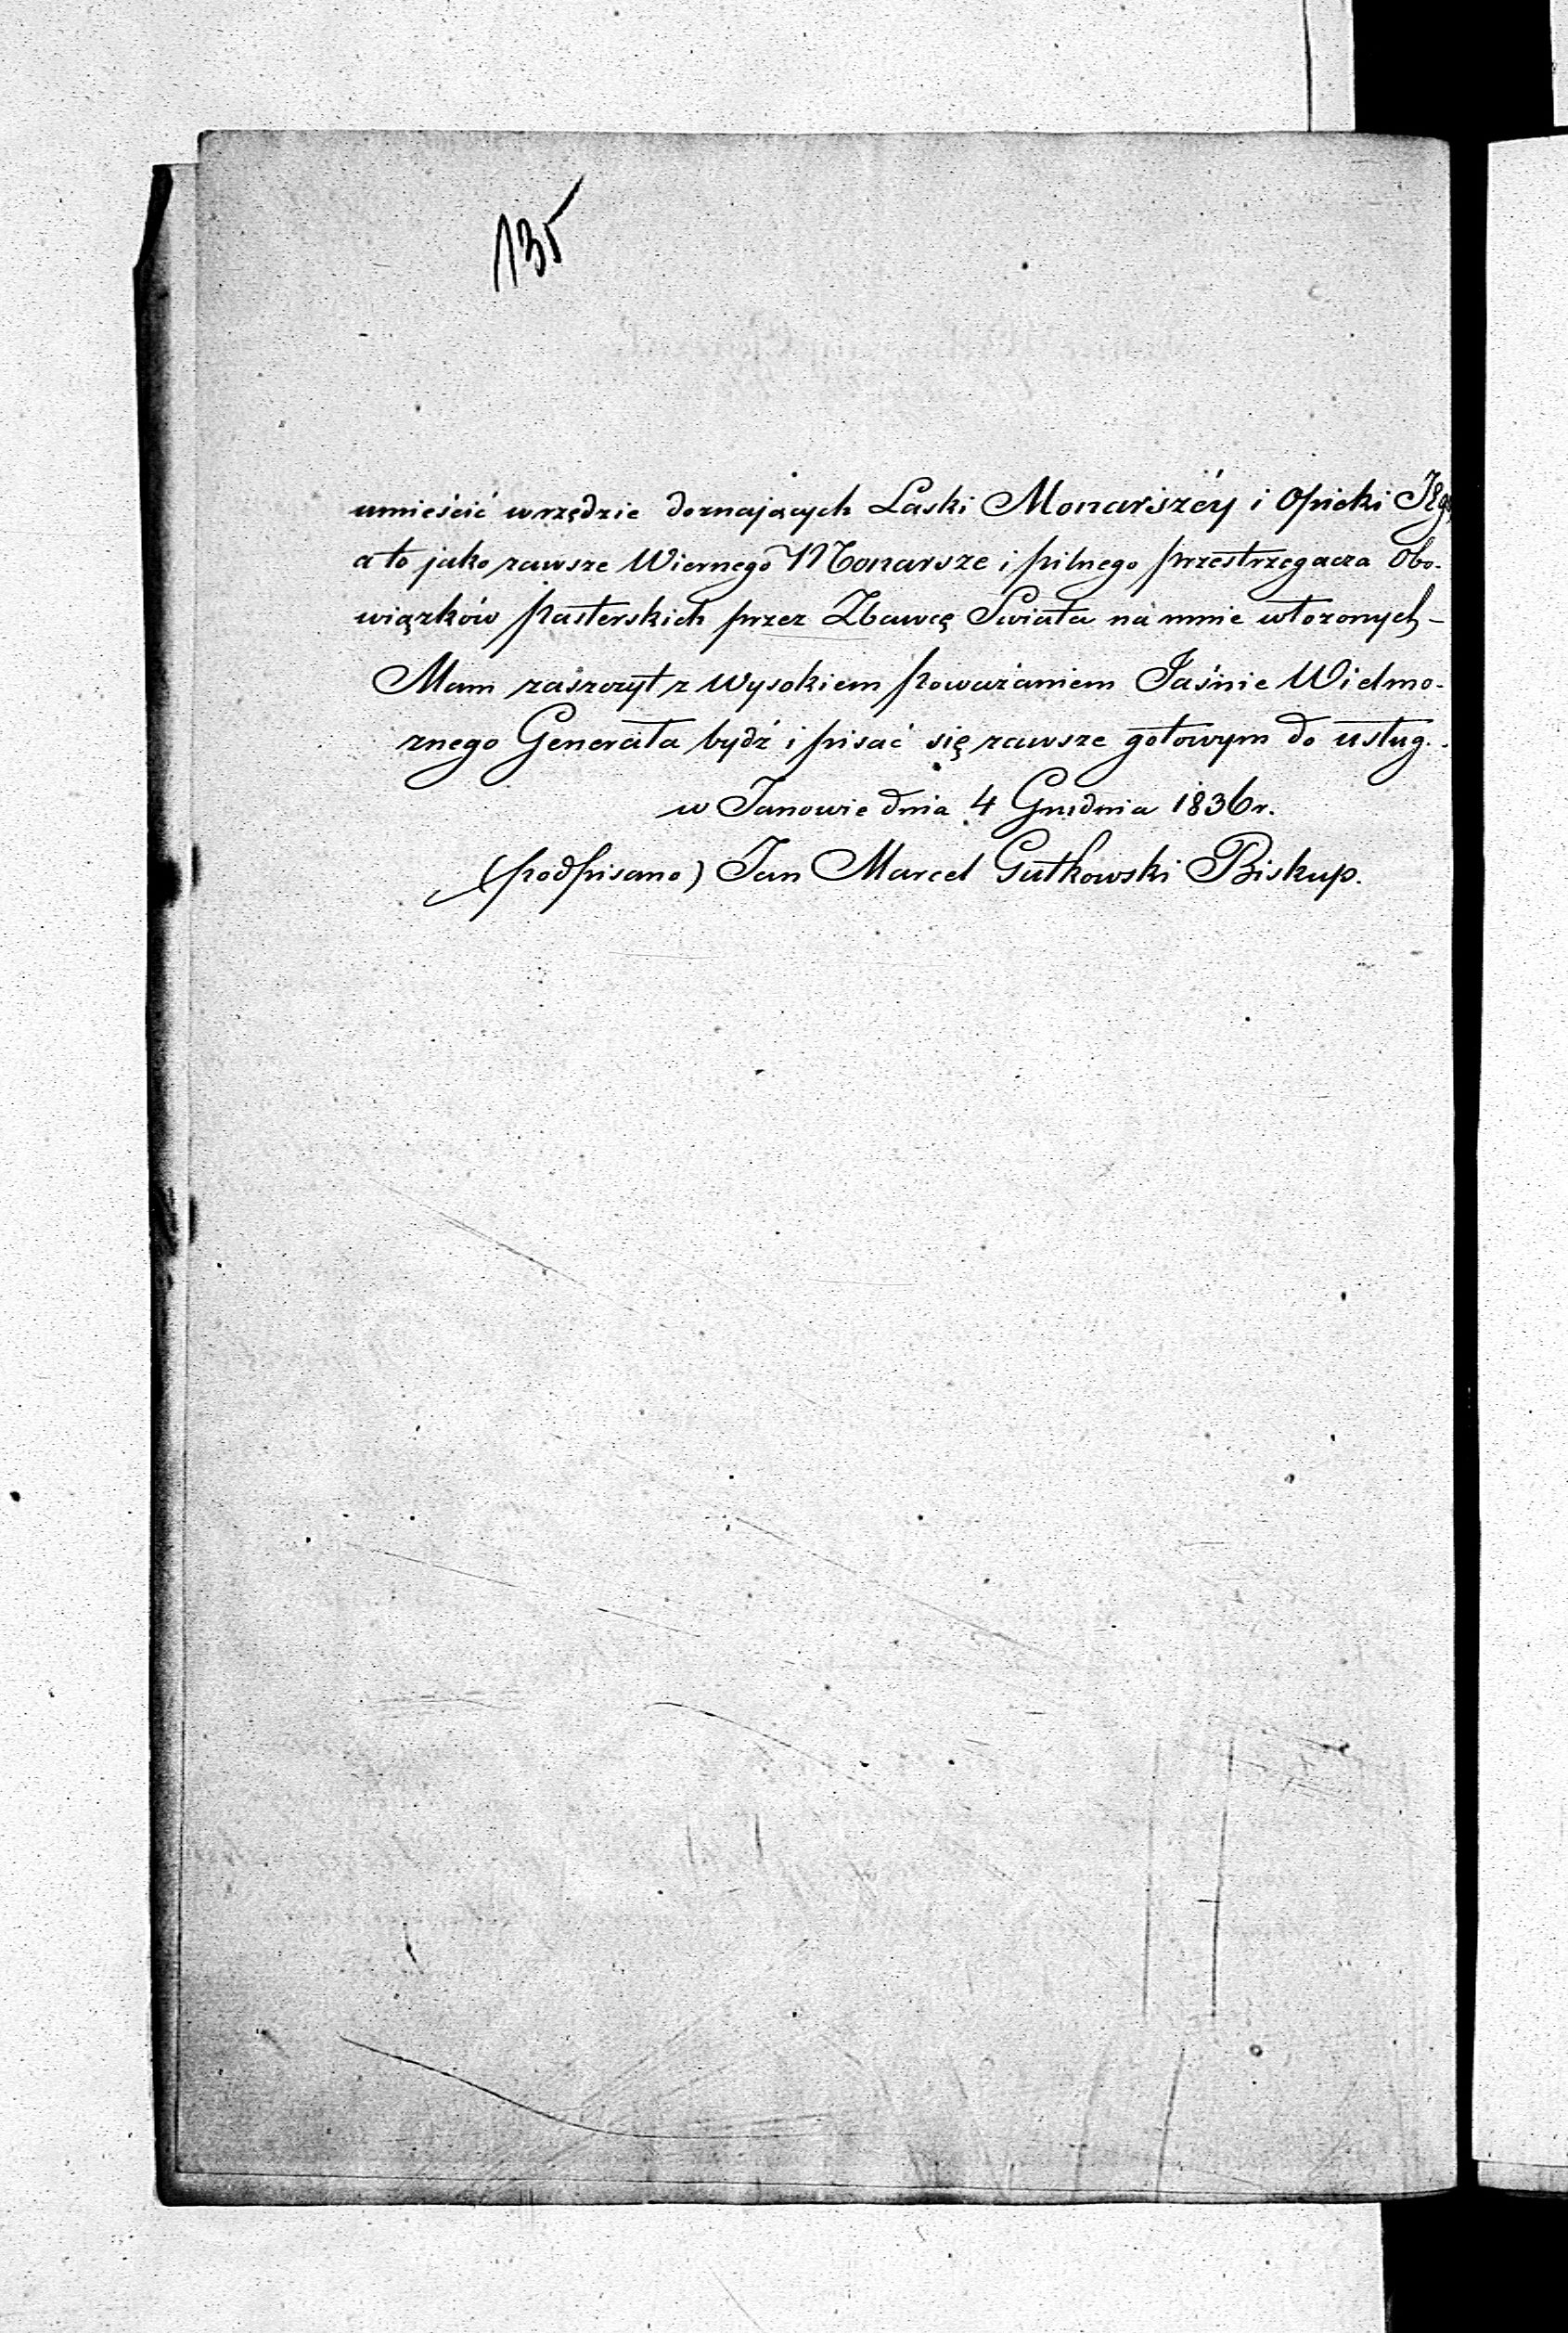 135
umieścić w rzędzie doznających Łaski Monarszéy i Opieki JEgo
a to jako zawsze Wiernego Monarsze i pilnego przestrzegacza Obo-
wiązków Pasterskich przez Zbawcę Świata na mnie włożonych -
Mam zaszczyt z Wysokiem Poważaniem Jaśnie Wielmo-
żnego Generała bydź i pisać się zawsze gotowym do usług.
w Janowie dnia 4 Grudnia 1836 r.
(podpisano) Jan Marcel Gutkowski Biskup.